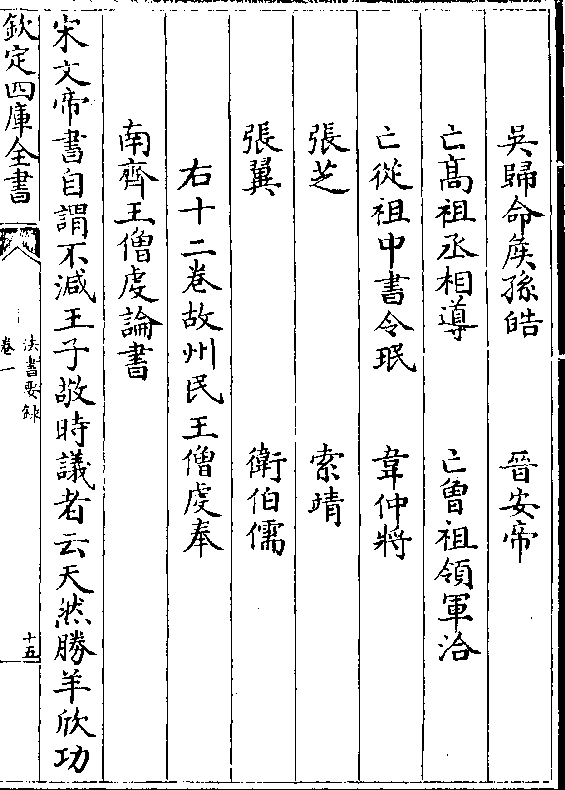 吳歸命侯孫皓　晉安帝
亡髙祖丞相導　亡曾祖領軍洽
亡從祖中書令珉　韋仲將
張芝　索靖
張翼　衛伯儒
右十二卷故州民王僧䖍奉
南齊王僧䖍論書
宋文帝書自謂不減王子敬時議者云天然勝羊欣功
欽定四庫全書
法書要録
卷一
十五